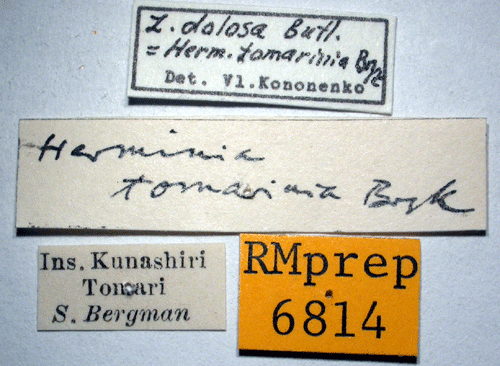 Z. dolosa Butl.
= Herm. tomarinia Bryk
Det. Vl.Kononenko
Herminia
tomarinia Bryk
Ins. Kunashiri
Tomari
S. Bergman
RMprep
6814